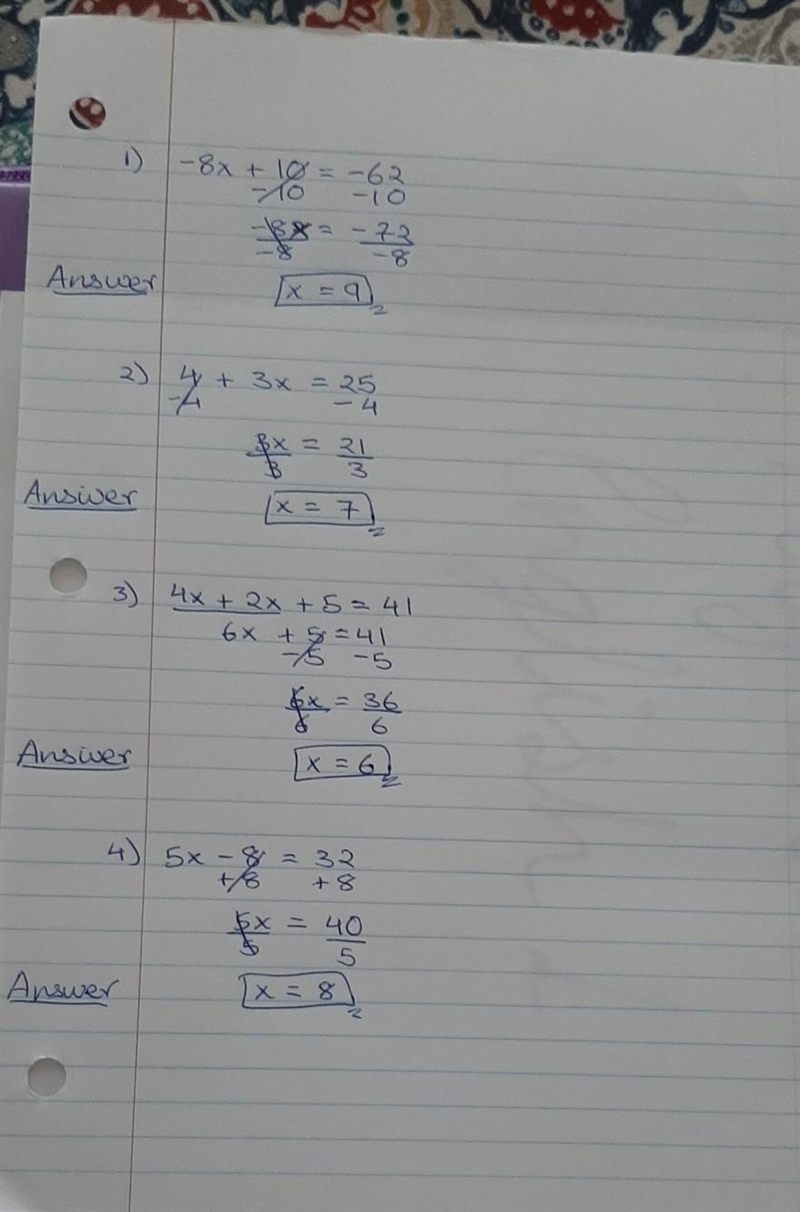 1) -8x + 10 = -62
-10 -10
-8x = -72
-8 -8
Answer x = 9
2) 4 + 3x = 25
-4 -4
3x = 21
3 3
Answer x = 7
3) 4x + 2x + 5 = 41
6x + 5 = 41
-5 -5
6x = 36
6 6
Answer x = 6
4) 5x - 8 = 32
+8 +8
5x = 40
5 5
Answer x = 8